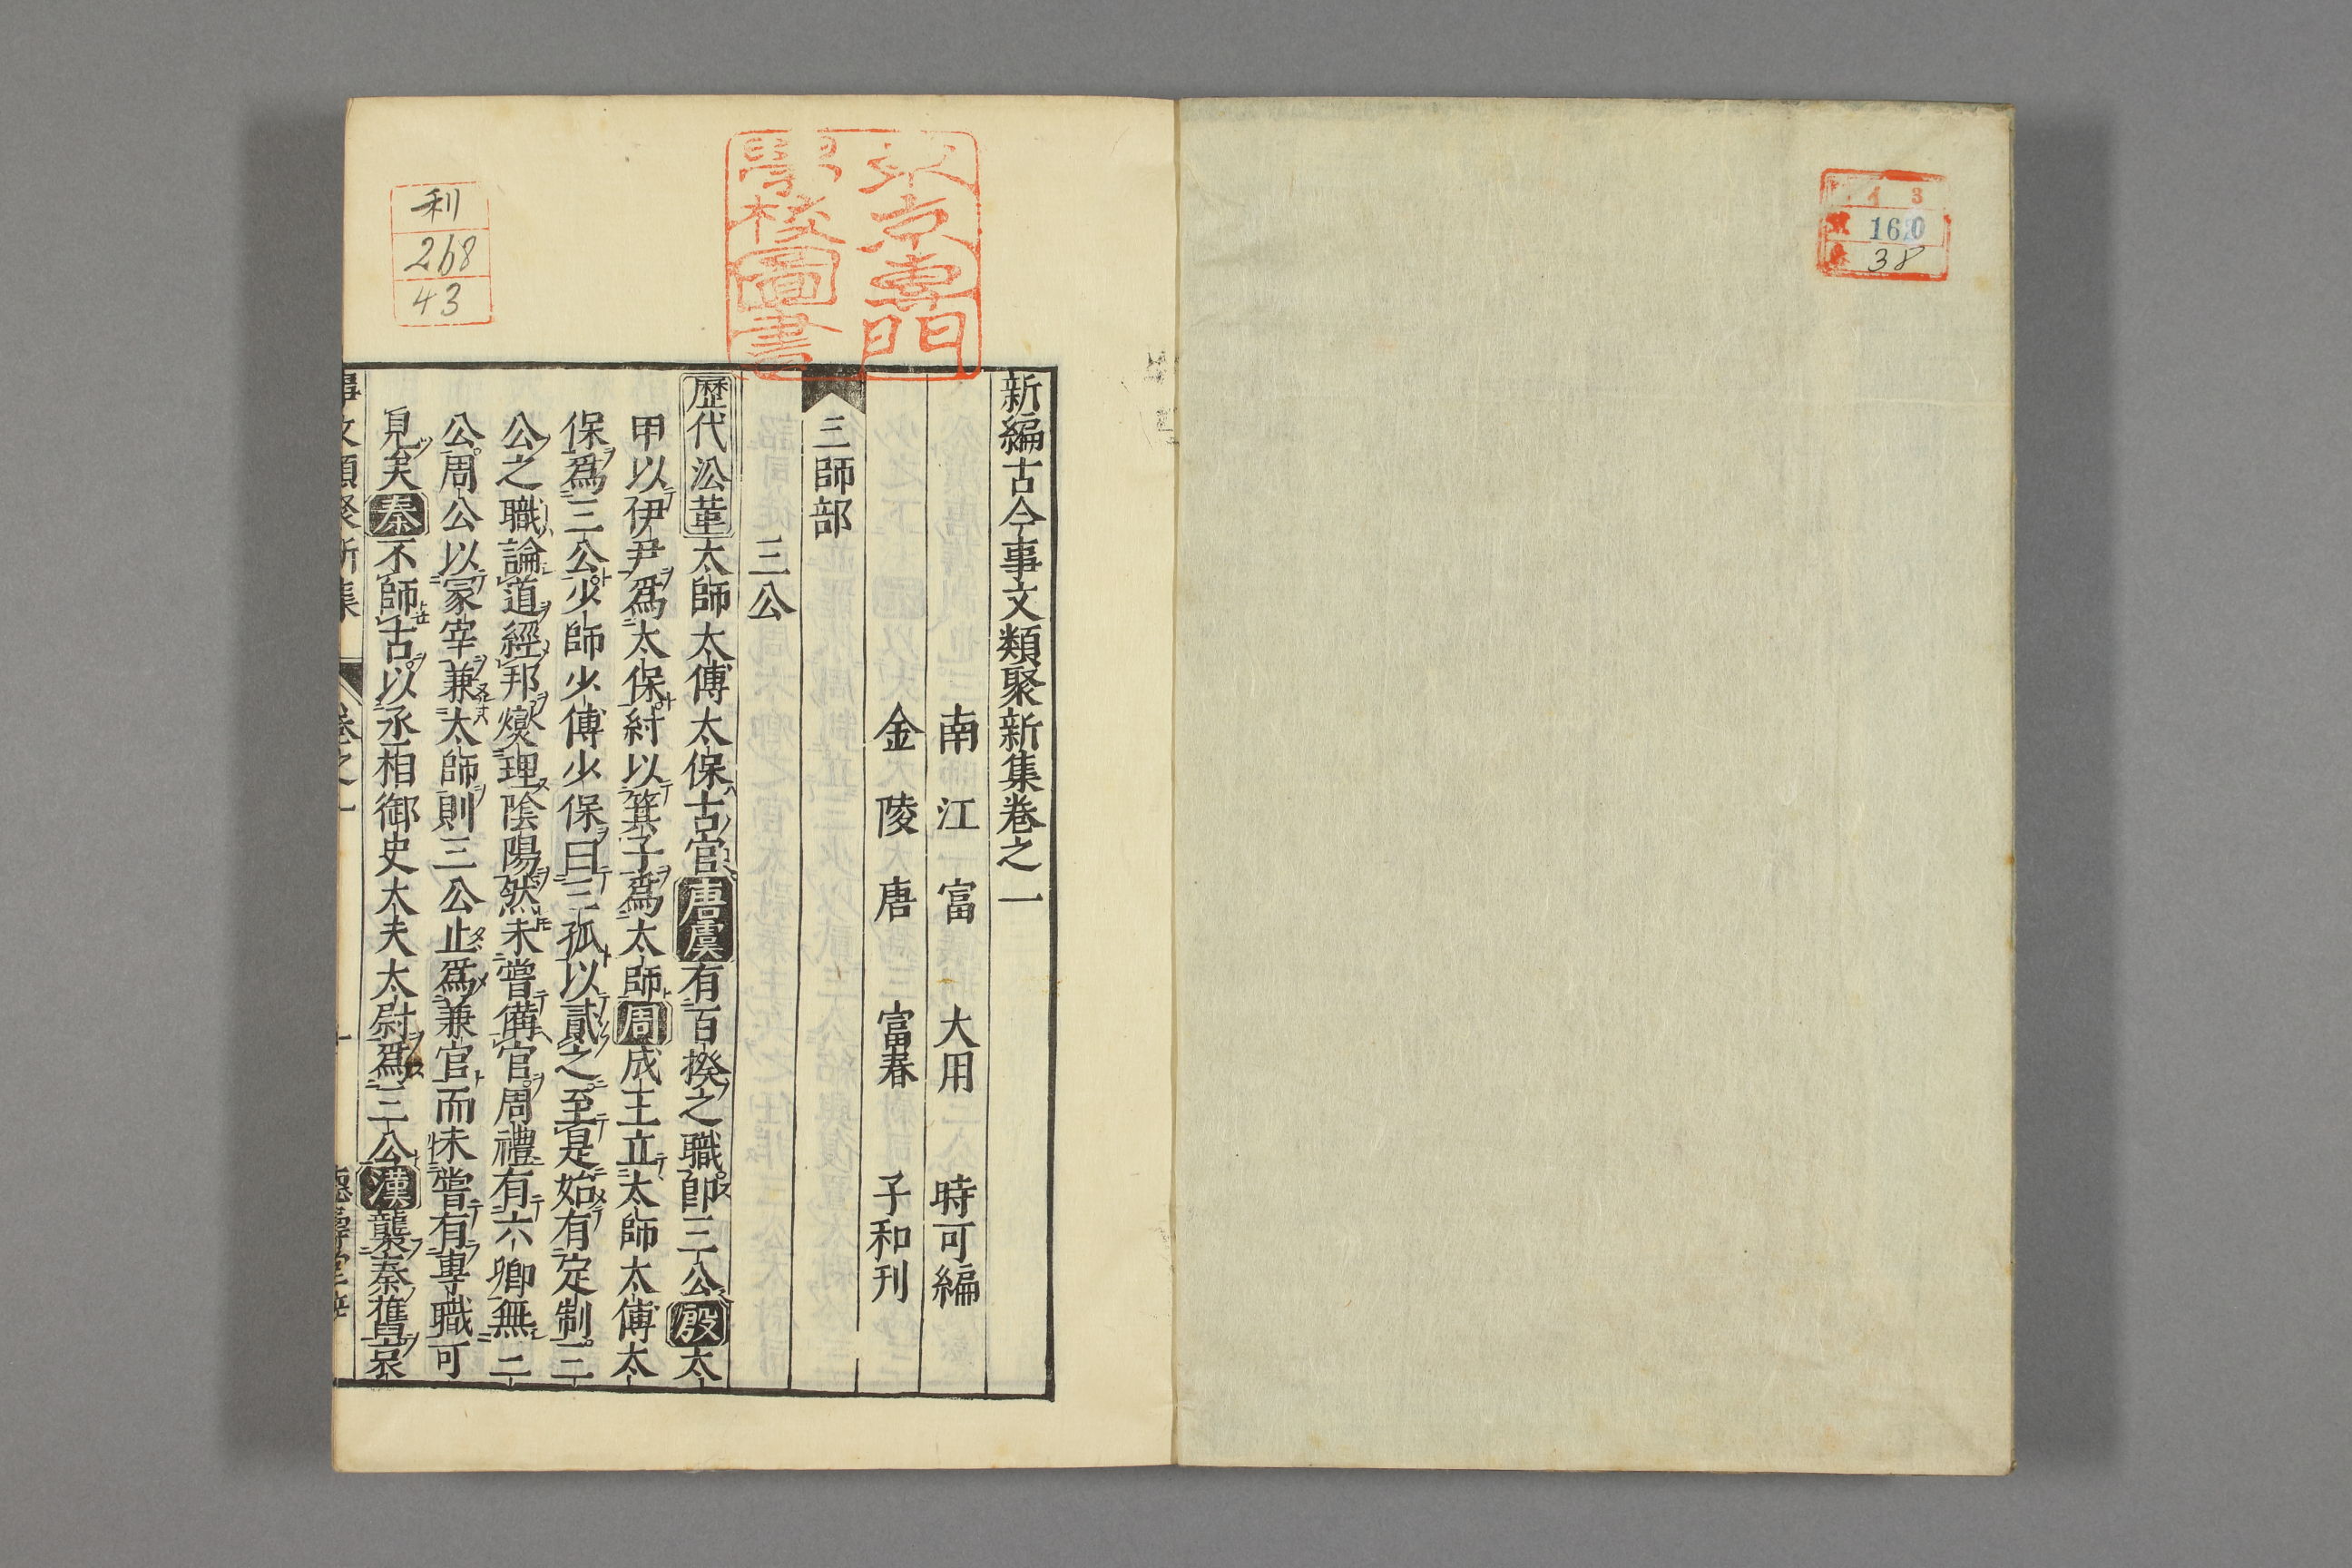 3
1620
38
東京專門
學校圖書
利
268
43
新編古今事文類聚新集卷之一
南江富大用時可編
金陵唐富春子和刊
三師部
三公
歷代沿革太師太傅太保古官唐虞有百揆之職卽三公殷太
甲以伊尹爲太保紂以箕子爲太師周成王立太師太傅太
保爲三公少師少傅少保曰三孤以貳之至是始有定制三
公之職論道經邦燮理陰陽然未嘗備官周禮有六卿無二
公周公以冢宰兼太師則三公止爲兼官而未嘗有專職可
見矣秦不師古以丞相御史大夫太尉爲三公漢襲秦舊哀
事文類聚新集 卷之一 一 德壽堂梓